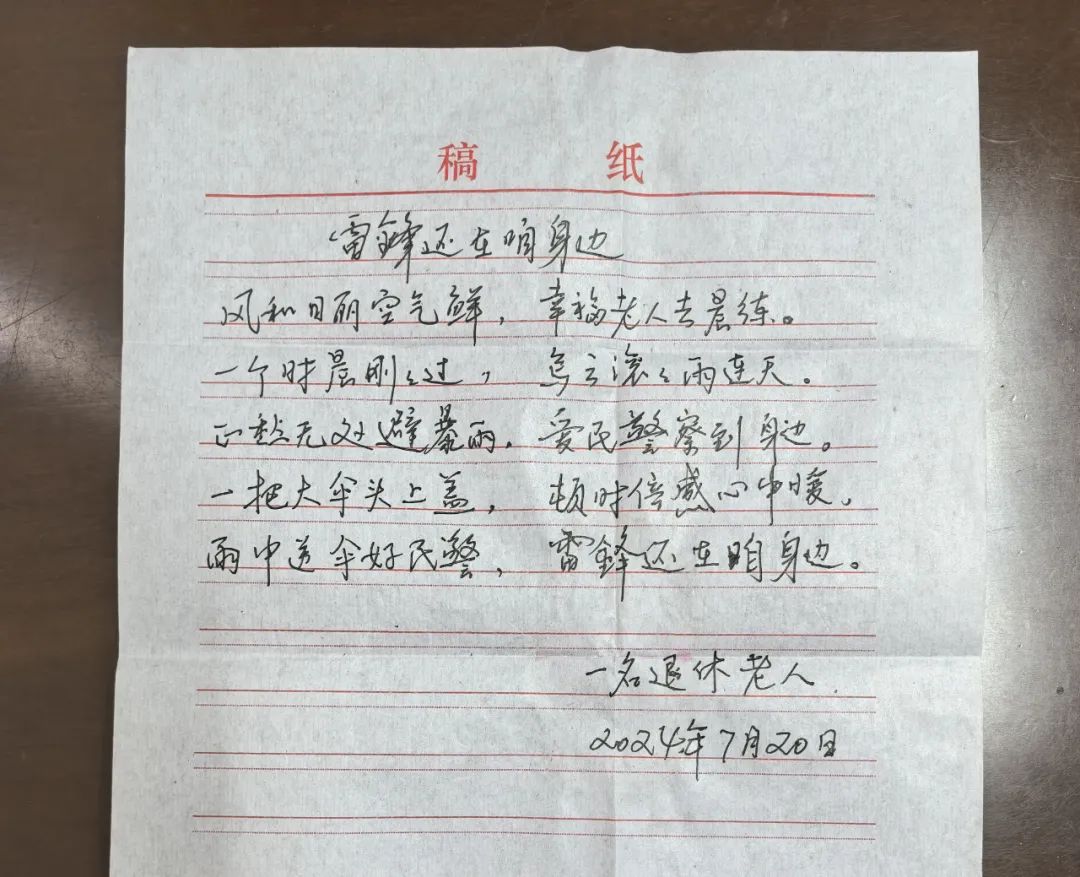 稿 纸
雷鋒还在咱身边
风和日丽空气鲜，幸福老人去晨练。
一个时晨刚刚过，乌云滚滚雨连天。
正愁无处避暴雨，爱民警察到身边。
一把大伞头上盖，顿时倍感心中暖。
雨中送伞好民警，雷鋒还在咱身边。
一名退休老人
2024年7月20日